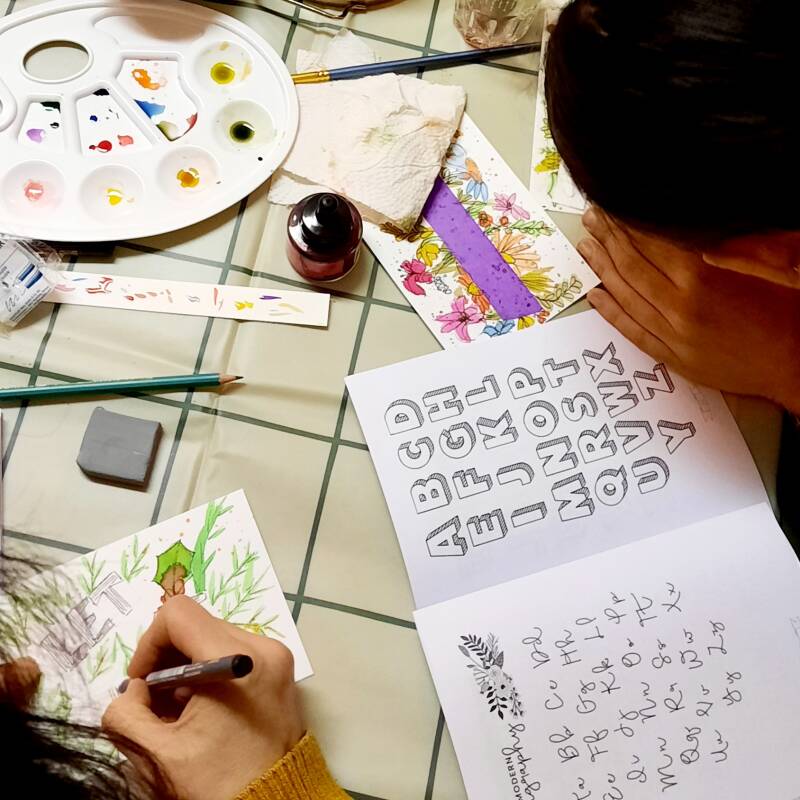 A B C D
E F G H
I J K L
M N O P
Q R S T
U V W X
Y Z
MODERN
Aa Bb Cc Dd
Ee Ff Gg Hh
Ii Jj Kk Ll
Mm Nn Oo Pp
Qq Rr Ss Tt
Uu Vv Ww Xx
Yy Zz
LET